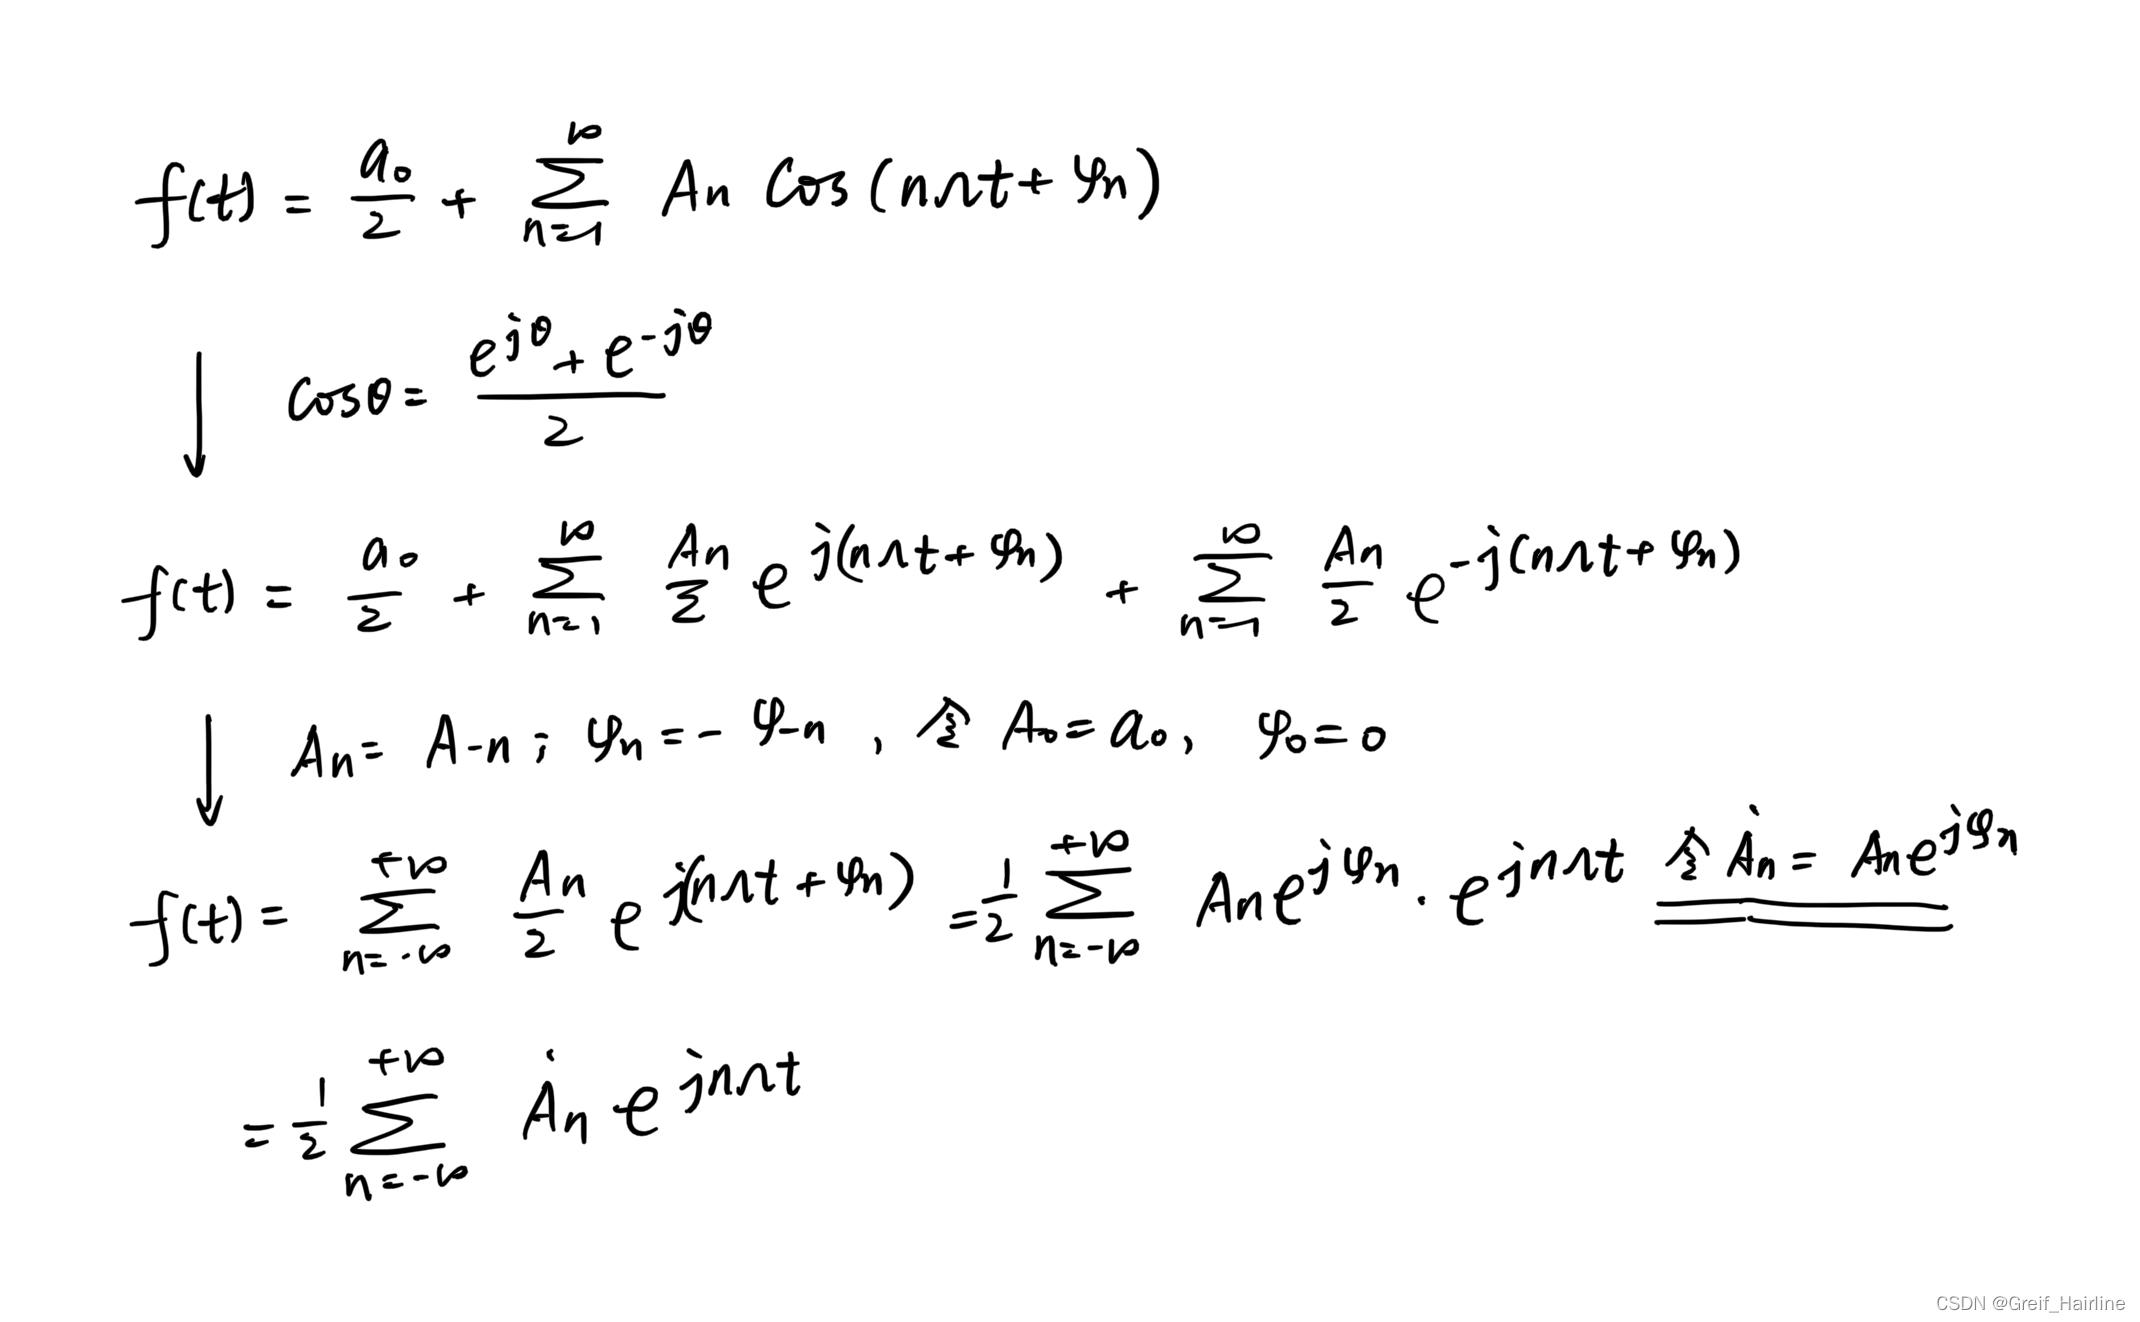 f(t) = a₀/2 + ∑_{n=1}^{∞} Aₙ cos(nΩt + φₙ)
↓ cosθ = (e^{jθ} + e^{-jθ})/2
f(t) = a₀/2 + ∑_{n=1}^{∞} Aₙ/2 e^{j(nΩt + φₙ)} + ∑_{n=1}^{∞} Aₙ/2 e^{-j(nΩt + φₙ)}
↓ Aₙ = A₋ₙ; φₙ = -φ₋ₙ, 令 A₀ = a₀, φ₀ = 0
f(t) = ∑_{n=-∞}^{+∞} Aₙ/2 e^{j(nΩt + φₙ)} = 1/2 ∑_{n=-∞}^{+∞} Aₙe^{jφₙ} · e^{jnΩt} 令 Ȧₙ = Aₙe^{jφₙ}
= 1/2 ∑_{n=-∞}^{+∞} Ȧₙ e^{jnΩt}
CSDN @Greif_Hairline